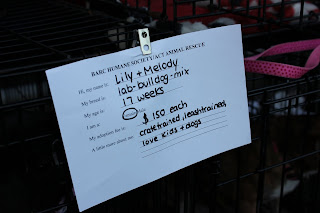 BARC HUMANE SOCIETY/ACT ANIMAL RESCUE
Hi, my name is: Lily + Melody
My breed is: lab-bulldog-mix
My age is: 17 weeks
I am a: Male
My adoption fee is: $150 each
A little more about me: cratetrained, leashtrained,
love kids + dogs